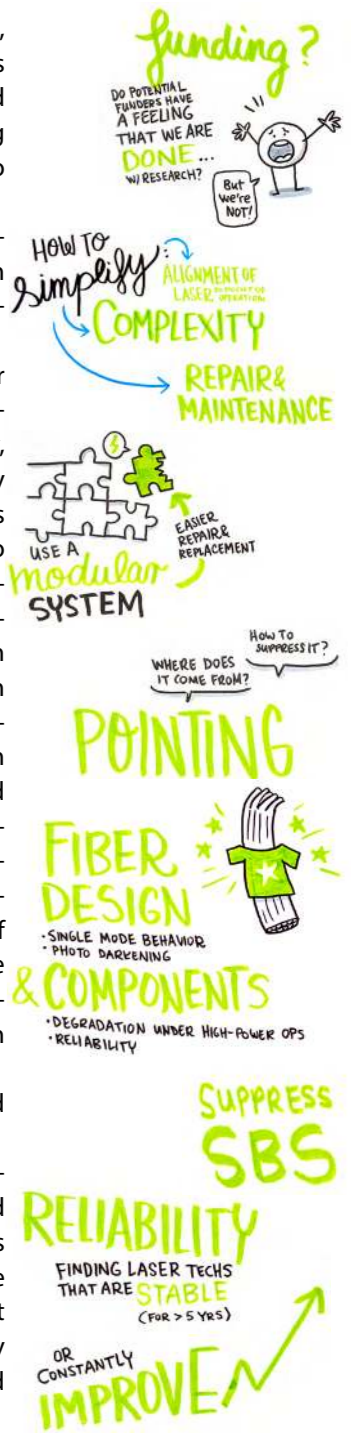 funding?
DO POTENTIAL
FUNDERS HAVE
A FEELING
THAT WE ARE
DONE...
W/ RESEARCH?
But
we're
NOT!
HOW TO
simplify:
ALIGNMENT OF
LASER
COMPLEXITY
REPAIR &
MAINTENANCE
EASIER
REPAIR &
REPLACEMENT
USE A
modular
SYSTEM
HOW TO
SUPPRESS IT?
WHERE DOES
IT COME FROM?
POINTING
FIBER
DESIGN
• SINGLE MODE BEHAVIOR
• PHOTO DARKENING
& COMPONENTS
• DEGRADATION UNDER HIGH-POWER OPS
• RELIABILITY
SUPPRESS
SBS
RELIABILITY
FINDING LASER TECHS
THAT ARE STABLE
(FOR > 5 YRS)
OR
CONSTANTLY
IMPROVE